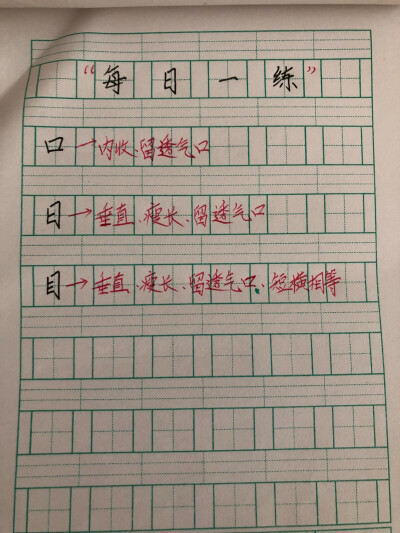 “每日一练”
口→内收、留透气口
日→垂直、瘦长、留透气口
目→垂直、瘦长、留透气口、短横相等